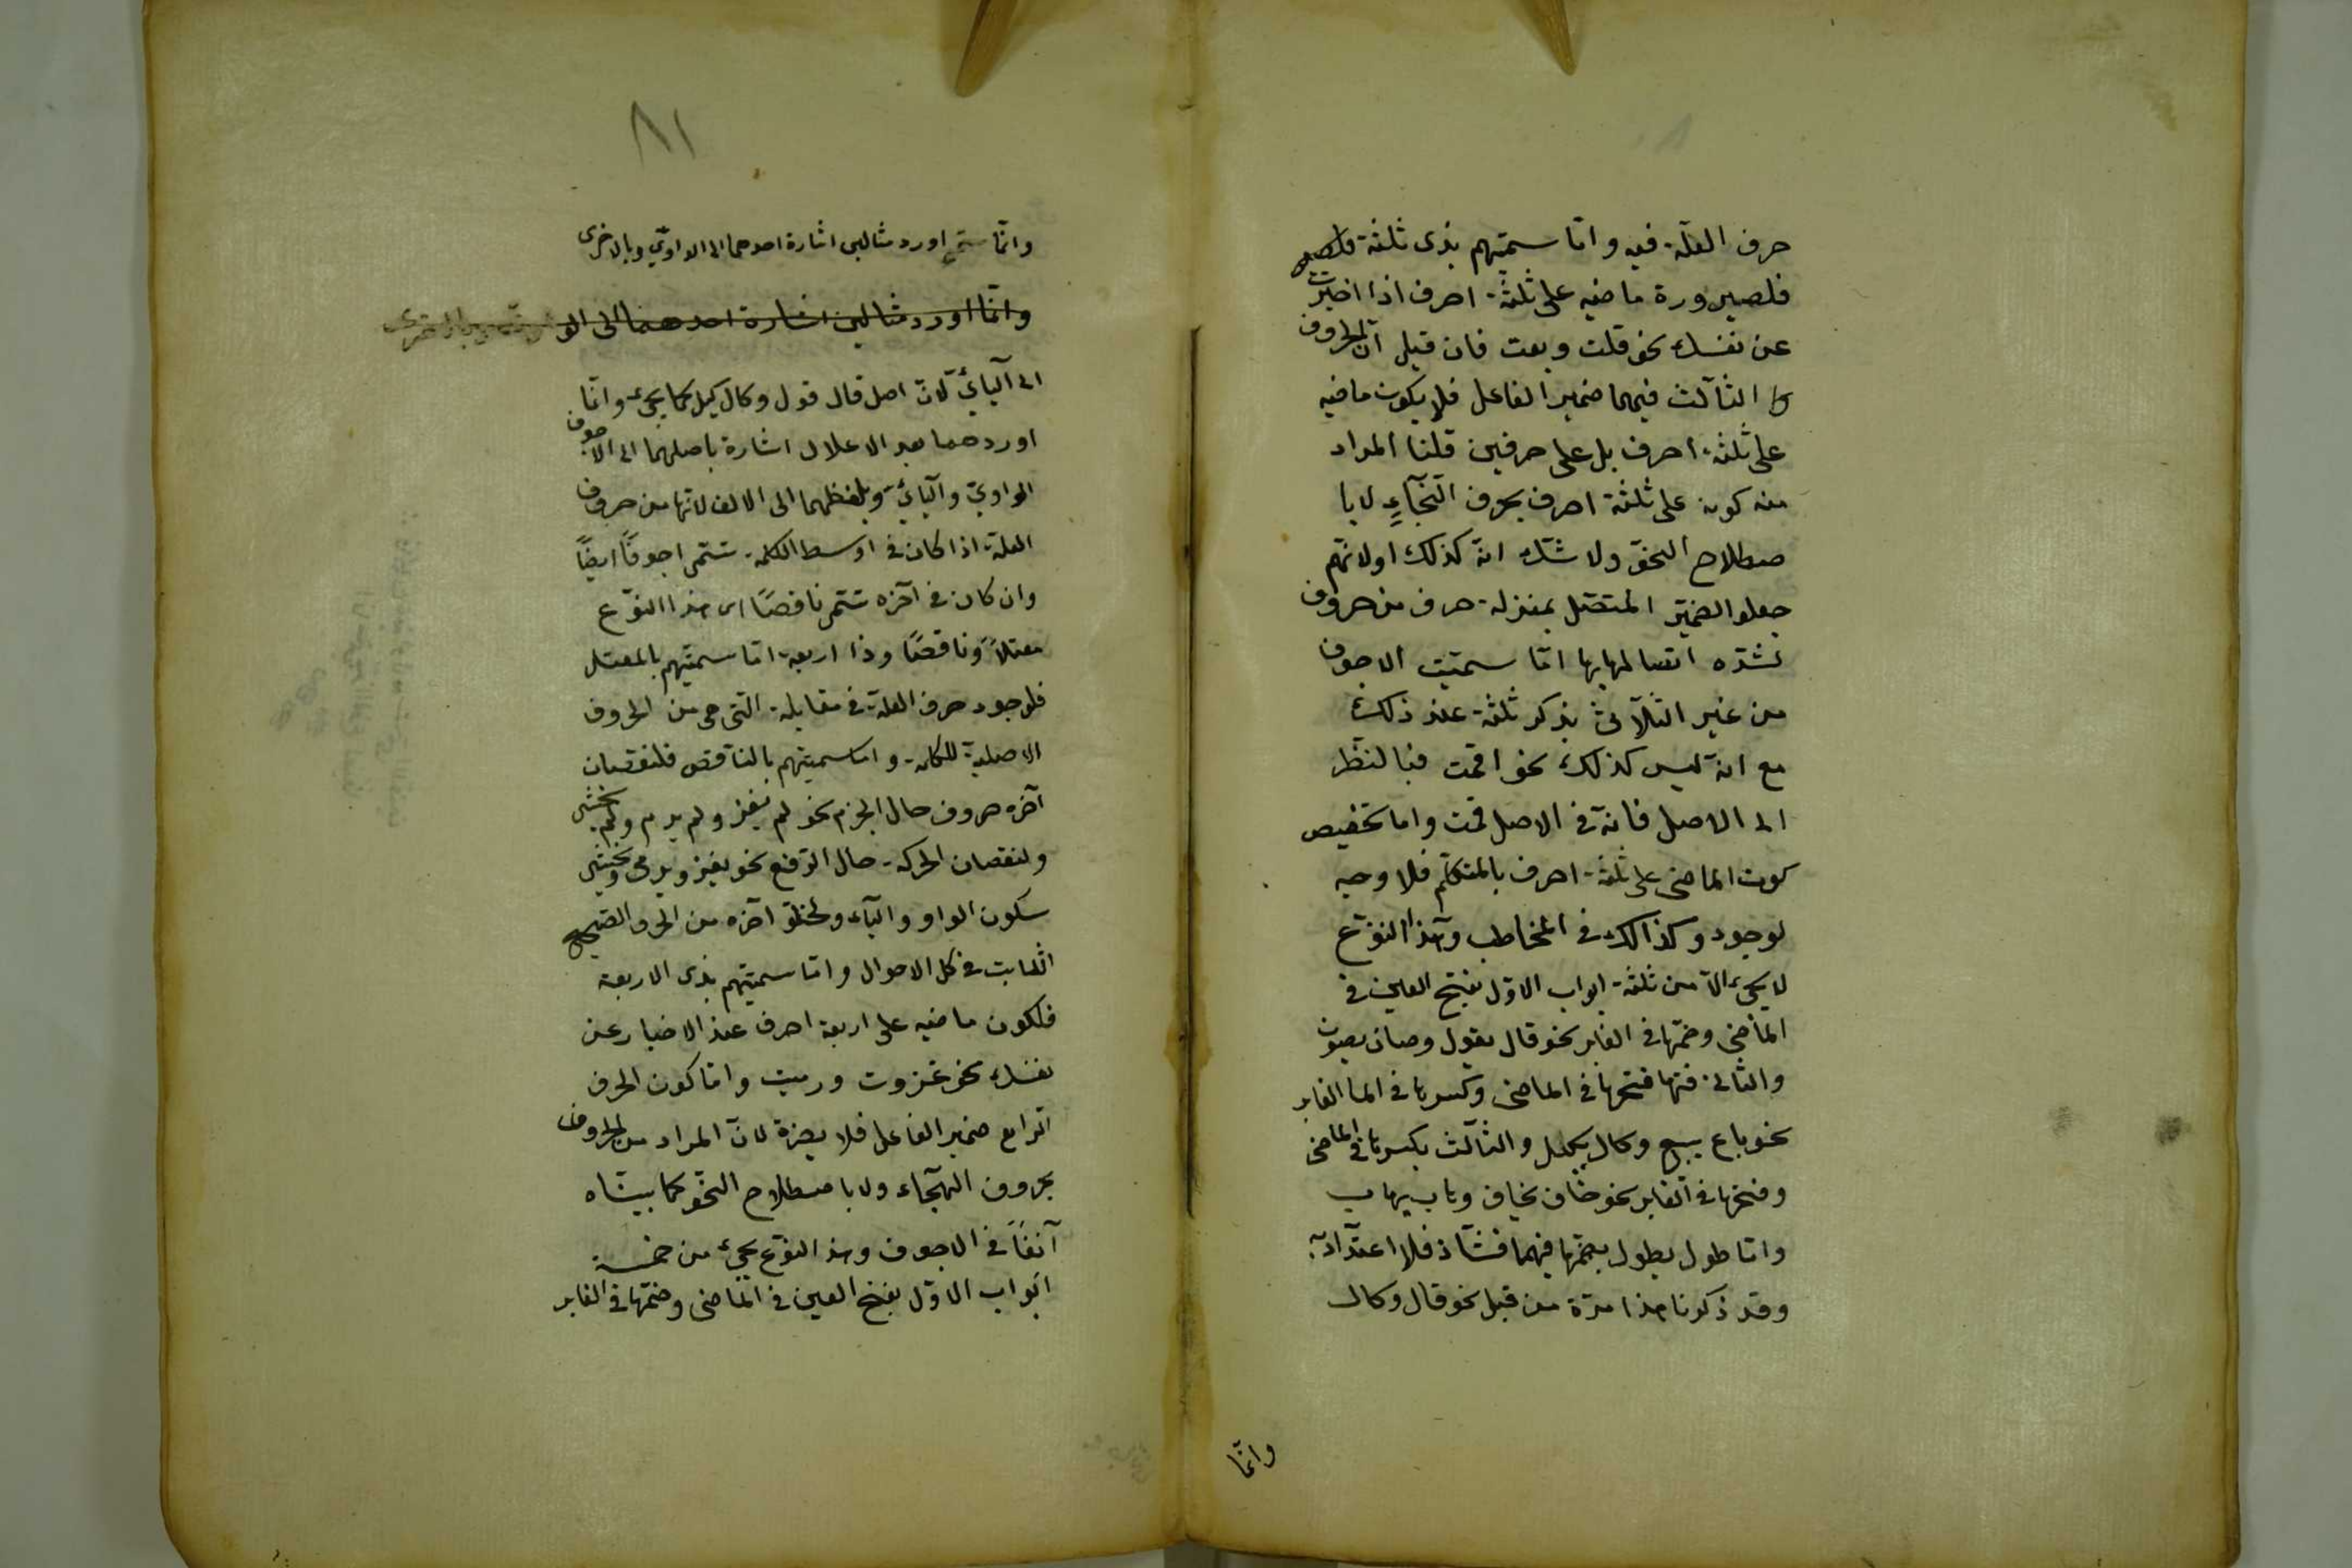 حرف العلّة فيه واتا سميتهم بذى ثلثة
فلصيرورة ماضيه على ثلثة احرف اذا اخبرت
عن نفسك نحو قلت وبعت فان قيل انّ الحروف
الثّالث فيهما ضمير الفاعل فلا يكون ماضيه
على ثلثة احرف بل على حرفين قلنا المراد
منه كونه على ثلثة احرف بحروف التّهجّاءِ لا با
صطلاح النحو ولا شكّ انّه كذلك اولانّهم
جعلوا الضمير المتّصل بمنزلة حرف من حروف
لشدّه اتصالها بها اتما سميّت الاجوف
من غير الثّلاثى بذكر ثلثة عند ذلك
مع انه ليس كذلك نحو اقمت فبالنّظر
الى الاصل فانّه فى الاصل قمت واما تخصيص
كون الماضى على ثلثة احرف بالمتكلّم فلا وجه
لوجود وكذالك فى المخاطب وهذا النوّع
لا يجىء الّا من ثلثة ابواب الاوّل بفتح العين فى
الماضى وضمّها فى الغابر نحو قال يقول وصان يصون
والثانى فتها فتحها فى الماضى وكسرها فى الما الغابر
نحو باع يبيع وكال يكيل والثّالث بكسرها فى الماضى
وفتحها فى الغابر نحو خاف يخاف وهاب يهاب
واتا طول يطول بضمّها فيهما فشّاذ فلا اعتدادبه
وقد ذكرنا هذا مرّة من قبل نحو قال وكال
وانّما
٨١
وانّما اورد مثالين اشارة احدهما الى الواوىّ وبالاخرى
وانّما اورد مثالين اشارة احدهما الى
الى اليائىّ لانّ اصل قال قول وكال كيل كما يجىء وانّما
اوردهما بعد الاعلال اشارة باصلهما الى الاجوف
الواوىّ واليائىّ وبلفظهما الى الالف لانّها من حروف
العلّة اذا كان فى اوسط الكلمة تسمّى اجوفًا ايضًا
وان كان فى آخره تسمّى ناقصًا اى هذا النوّع
معتلاً وناقصًا وذا اربعة اتا سميّتهم بالمعتل
فلوجود حرف العلّة فى مقابلة التى هى من الحروف
الاصلية للكلمة واما سميتهم بالنّاقص فلنقصان
آخره حروف حال الجزم نحو لم يغز ولم يرم ولم يخش
ولنقصان الحركة حال الرّفع نحو يغز ويرمى ويخشى
سكون الواو والياء ولخلوّ آخره من الحروف الصّحيح
الثابت فى كل الاحوال واتا سميّتهم بذى الاربعة
فلكون ماضيه على اربعة احرف عند الاخبار عن
نفسك نحو غزوت ورميت واتا كون الحرف
الرّابع ضمير الفاعل فلا يضرّه لانّ المراد من الحروف
بحروف التهجّاء ولا باصطلاح النّحو كما بيّناه
آنفًا فى الاجوف وهذا النوّع يجىء من خمسة
ابواب الاوّل بفتح العين فى الماضى وضمّها فى الغابر